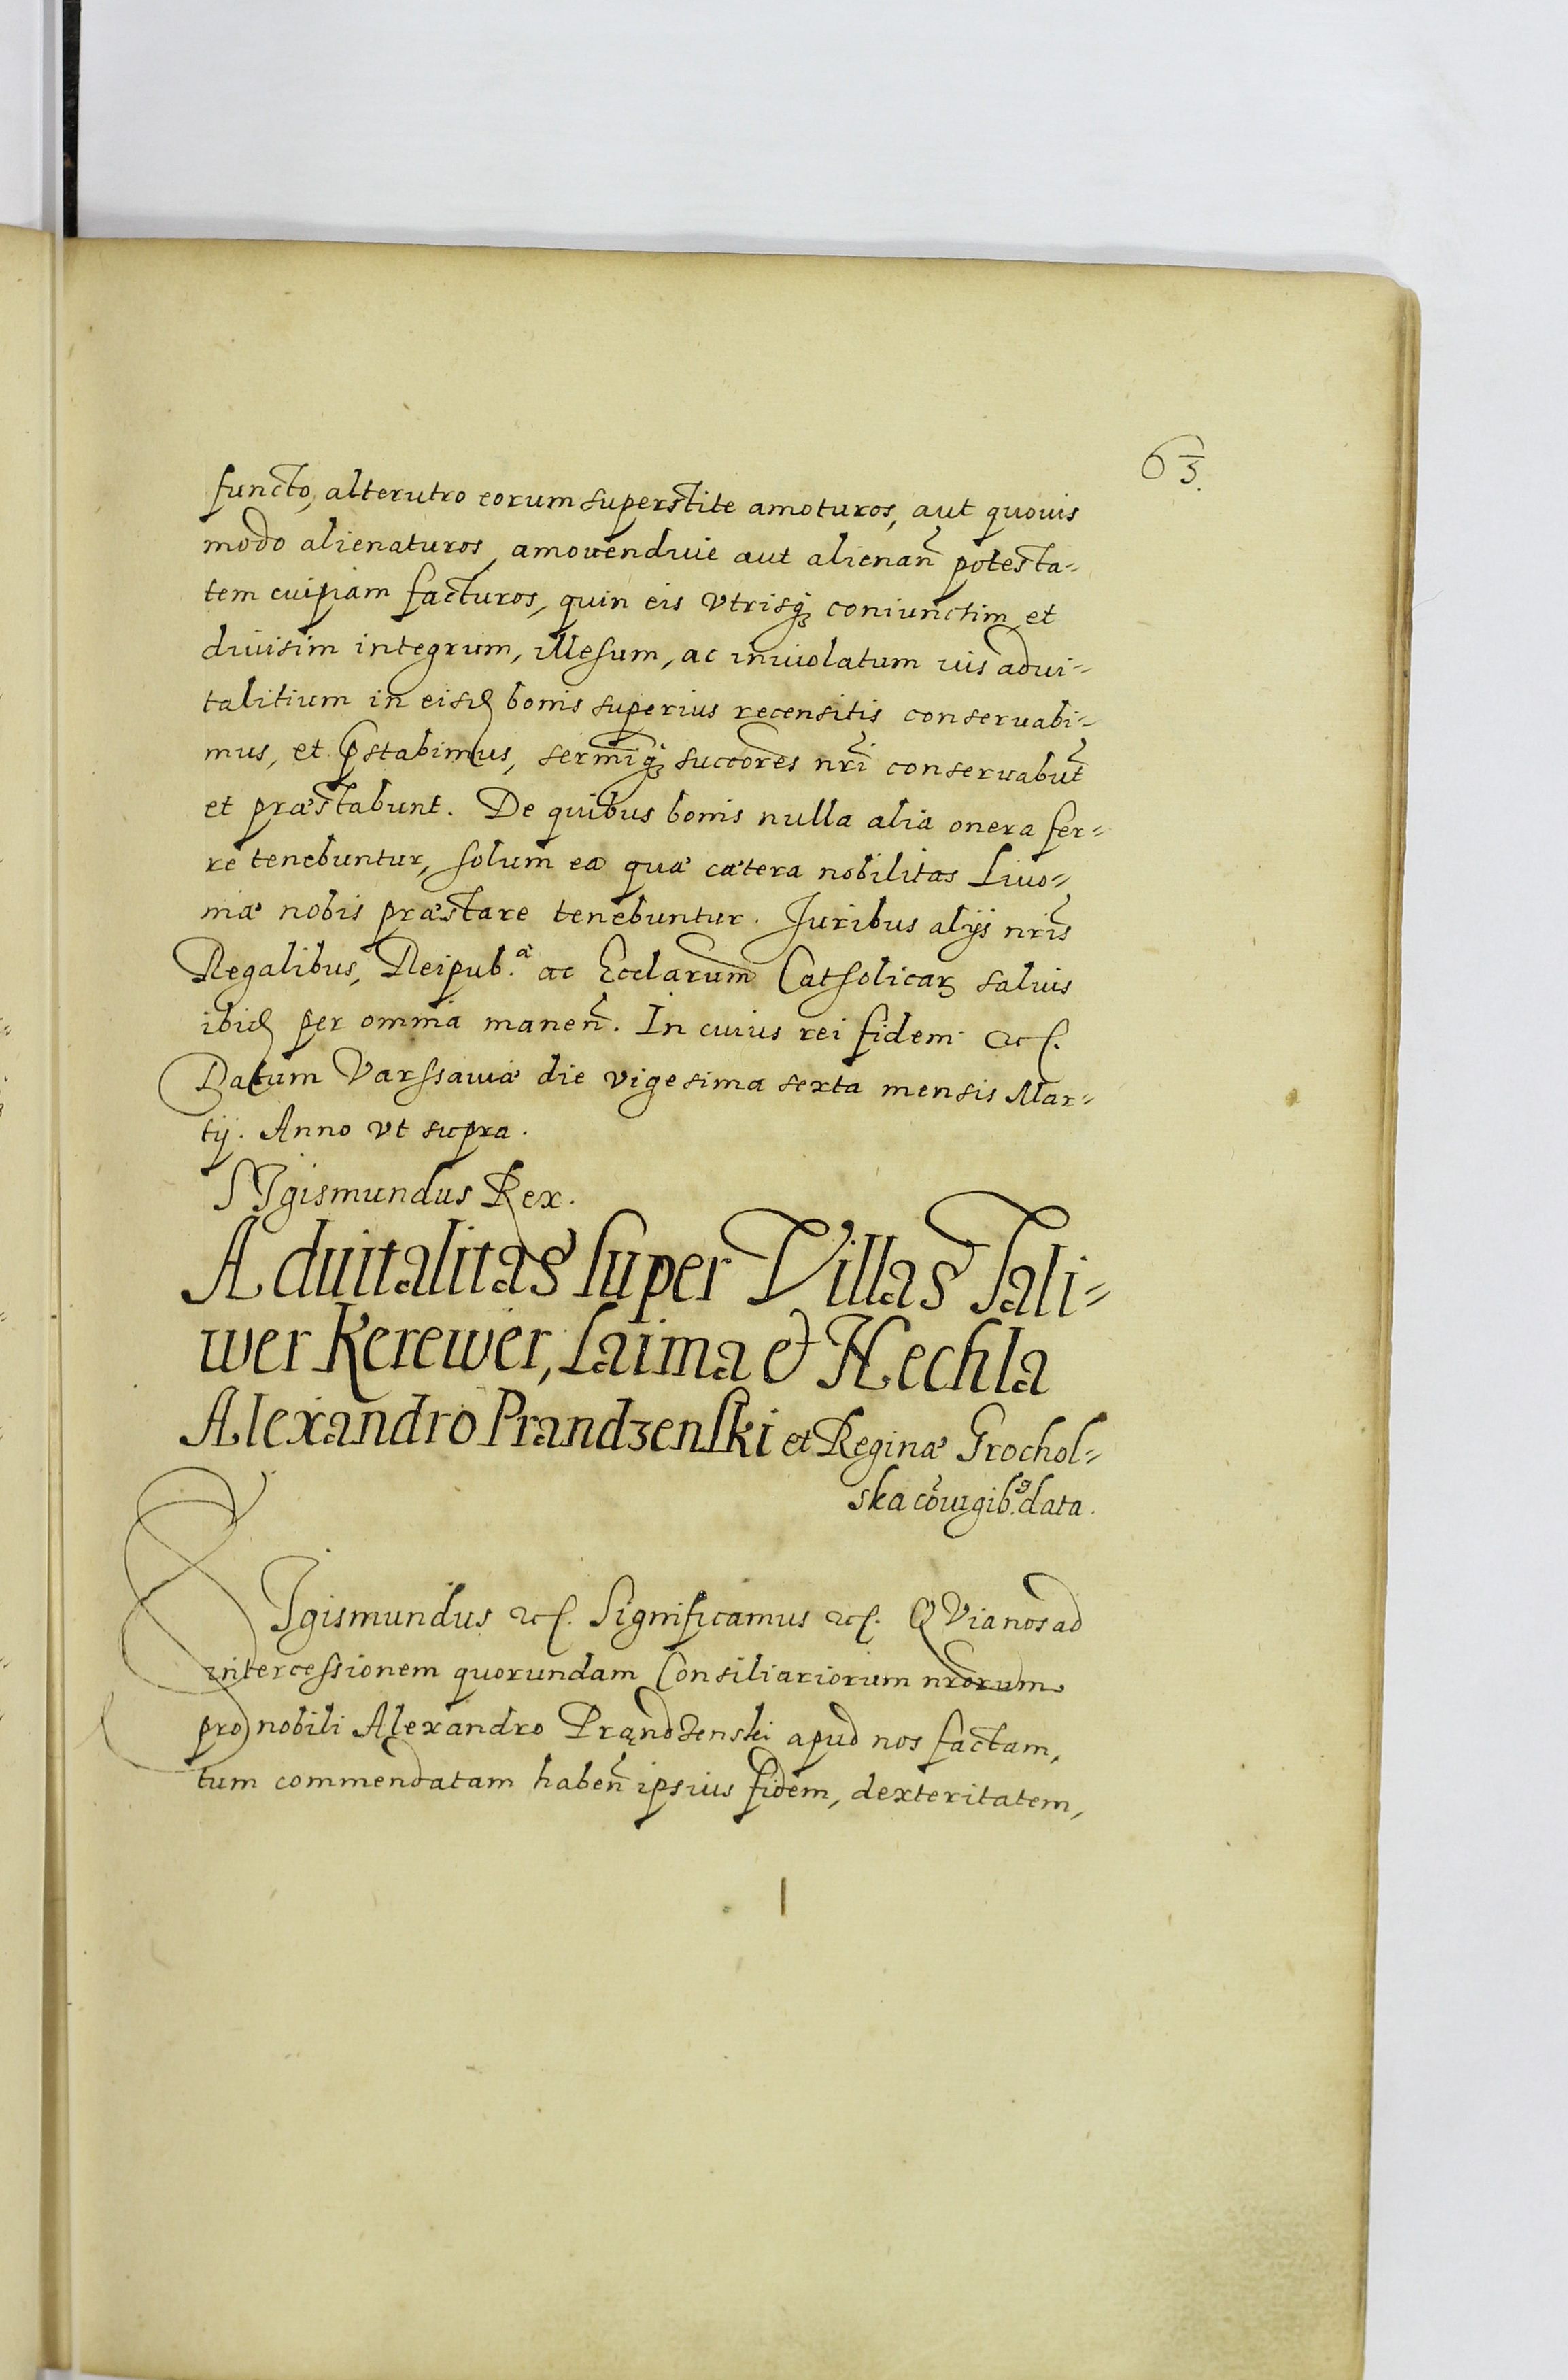 63.
functo, alterutro eorum superstite amoturos, aut quouis
modo alienaturos, amouenduie aut alienañ potesta-
tem cuipiam facturos, quin eis vtrisq3 coniunctim et
diuisim integrum, illesum, ac inuiolatum ius adui-
talitium in eisd bonis superius recensitis conseruabi-
mus, et pstabimus, sermiq3 succores nri conseruabut
et præstabunt. De quibus bonis nulla alia onera fer-
re tenebuntur, solum ea quæ cætera nobilitas Liuo-
niæ nobis præstare tenebuntur. Juribus alijs nris
Regalibus, Reipub.æ ac Ecclarum Catholicar saluis
ibid per omnia maneñ. In cuius rei fidem etc.
Datum Varssauiæ die vigesima sexta mensis Mar-
tij. Anno vt supra.
SIgismundus Rex.
Aduitalitas super Villas Sali-
wer Kerewer, Laima & Hechla
Alexandro Prandzenski et Reginæ Grochol-
ska cõiugib9 data.
SIgismundus etc. Significamus etc. QVia nos ad
intercessionem quorundam Consiliariorum nrorum
pro nobili Alexandro Prądzenski apud nos factam,
tum commendatam habeñ ipsius fidem, dexteritatem,